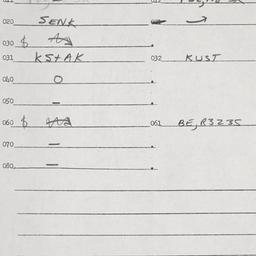 020 SENK
030 $
031 KSTAK 032 KUST
040 O
050 –
060 $ 061 BE,R3235
070 –
080 –